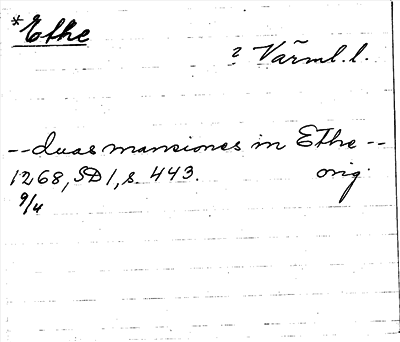 *Ethe
? Värml.l.
--duas mansiones in Ethe--
1268, SD 1, s. 443. orig.
9/4